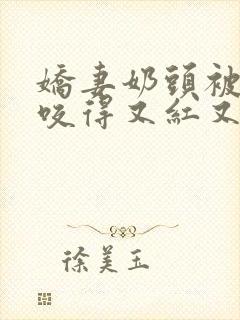 嬌妻奶頭被
咬得又紅又
徐美玉